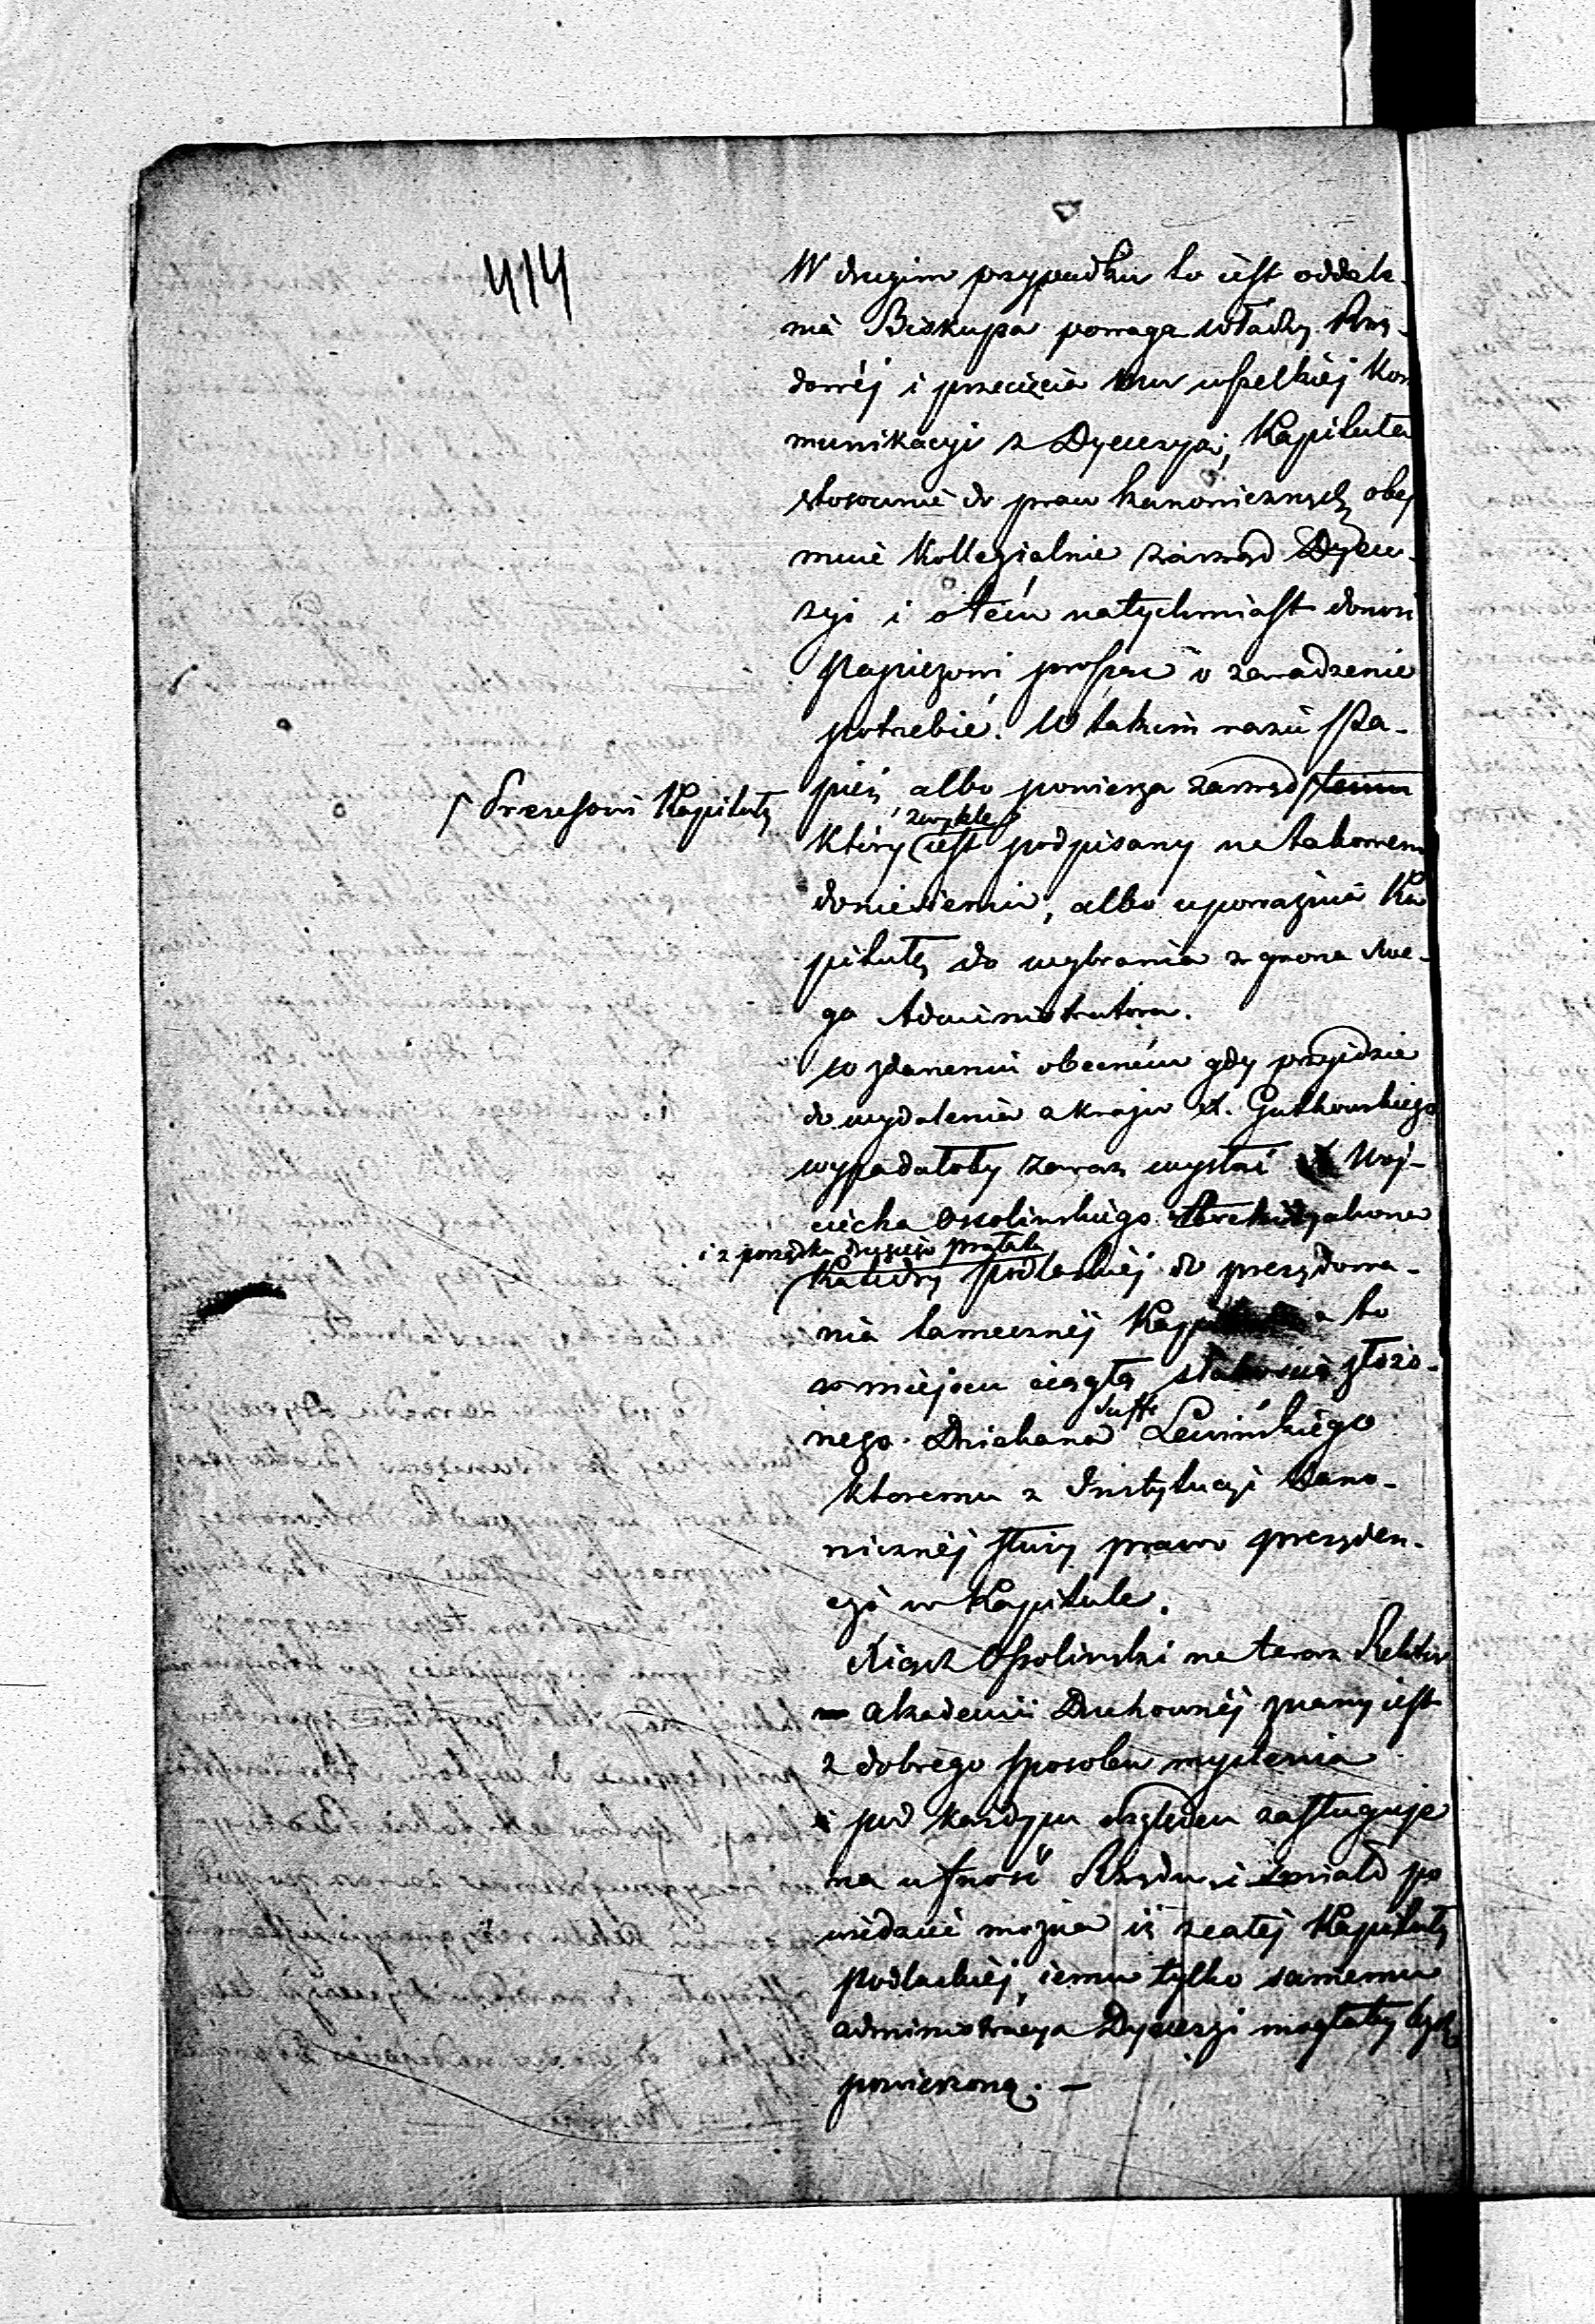 414
W drugim przypadku to iest oddale-
nia Biskupa pomagą władzy Rzą-
dowéj i przecięcia mu wszelkiéj Kom
munikacyi z Dyecezyą, Kapituła
stosownie do praw kanonicznych obej
muie Kollegialnie zarząd Dyece-
zyi i o tém natychmiast donosi
Papieżowi prosząc o zaradzenie
potrzebie. W takim razie Pa-
pież albo powierza zarząd temu
Prezesowi Kapituły
zwykle
który iest podpisany na takowem
doniesieniu, albo upoważnia Ka
pitułę do wybrania z grona swe-
go Administratora.
W zdarzeniu obecném gdy przyjdzie
do wydalenia z kraju X. Gutkowskiego
wypadałoby zaraz wysłać X Woj-
ciecha Ossolinskiego Archidyakona
i z porządku drugiego Prałata
Katedry Podlaskiéj do prezydowa-
nia tameczney Kapitule a to
w miejscu ciągłą słabością złożo-
nego Dziekana Suffr Lewińskiego
ktoremu z Instytucyi kano-
nicznéj służy prawo prezyden-
cyi w Kapitule.
Xiądz Ossolinski na teraz Rektor
Akademii Duchownéj znany iest
z dobrego sposobu myślenia
i pod każdym względem zasługuje
na ufność Rządu, i śmiało po
wiedzieć można iż z całéj Kapituły
Podlaskiéj, iemu tylko samemu
administracya Dyecezyi mogłaby bydź
powierzoną. —